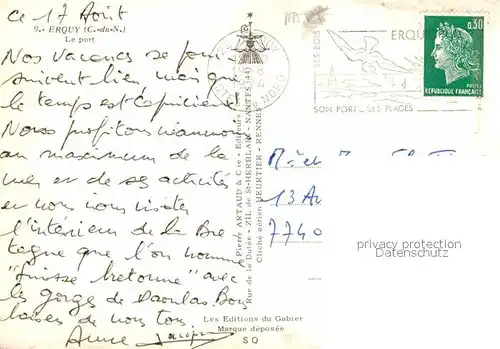 ce 17 Août
9. - ERQUY (C.-du-N.)
Le port
Nos vacances se pour-
suivent bien mais que
le temps est capricieux
Nous profitons néanmoins
au maximum de la
mer et de ses activités
et nous nous visitons
l'intérieur de la Bre
tagne que l'on nomme
"Suisse bretonne" avec
les gorges de Daoulas. Bons
baisers de nous tous
Anne Jacques
Pierre ARTAUD & Cie - Editeurs
Rue de la Dutée - ZIL de St-HERBLAIN - NANTES (44)
Cliché aérien HEURTIER - RENNES
Les Editions du Gabier
Marque déposée
SQ
SES BOIS
ERQUY
SON PORT _ SES PLAGES
0,30
POSTES
REPUBLIQUE FRANÇAISE
13 Av
7740
privacy protection
Datenschutz